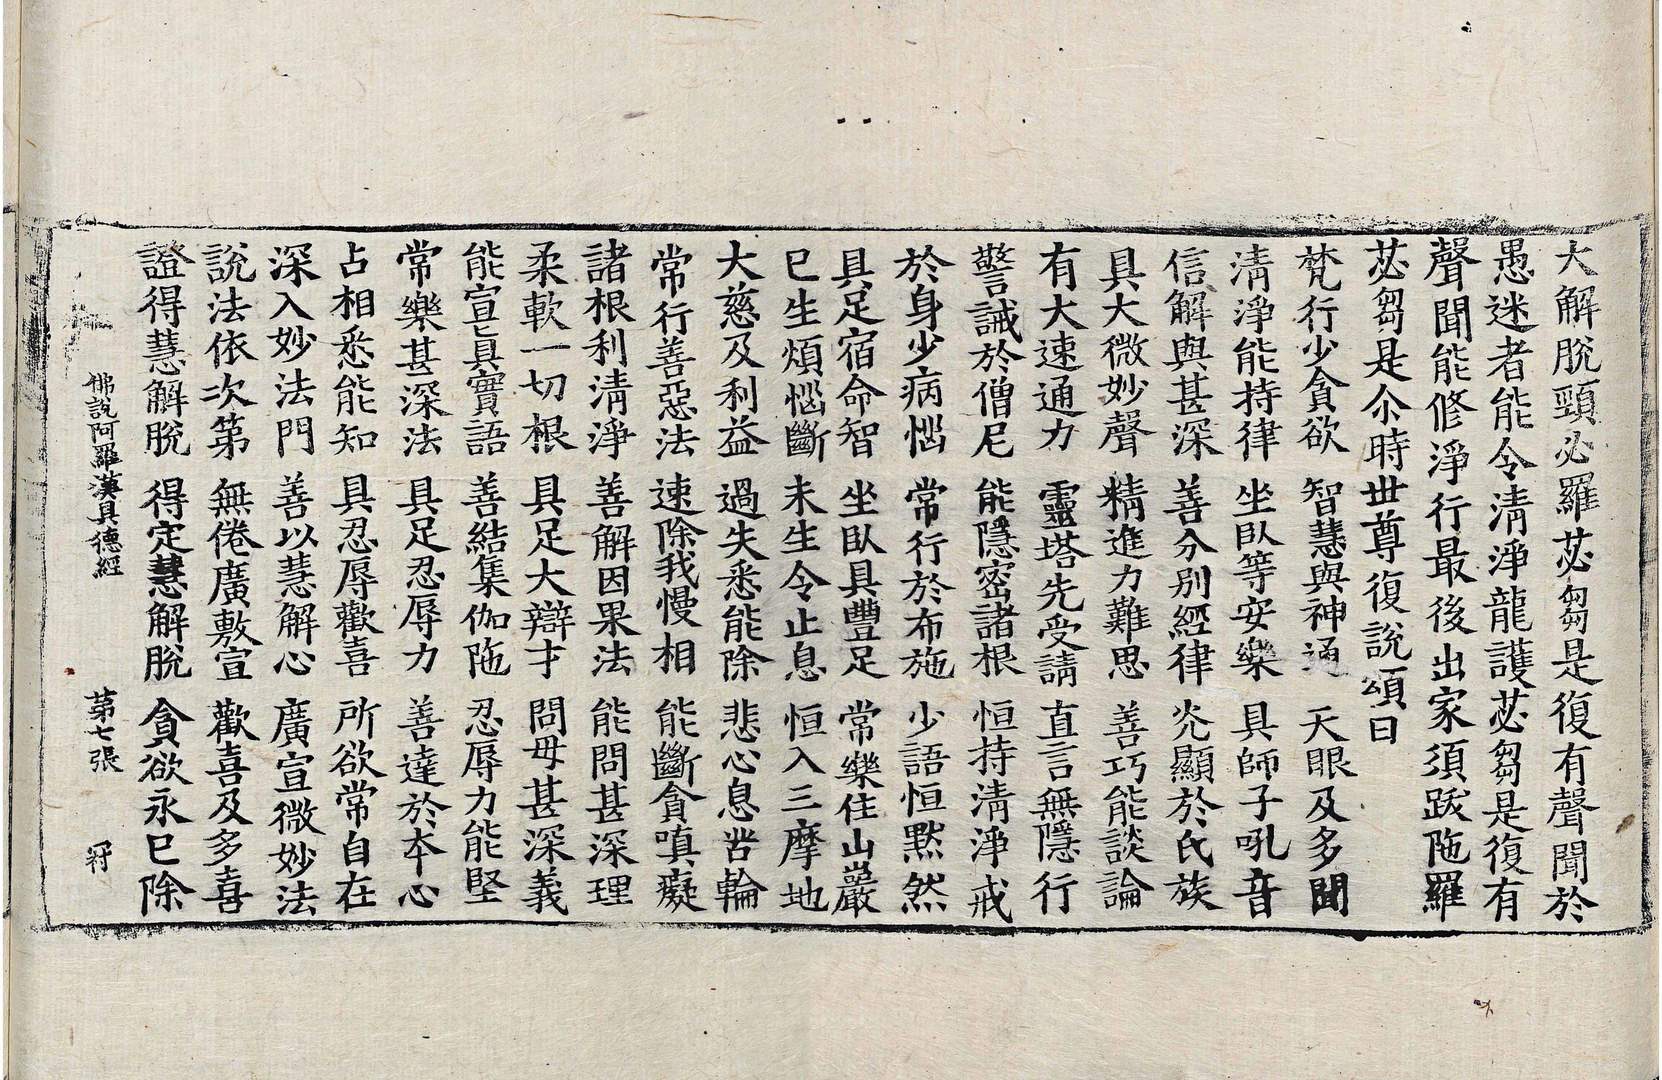 大解脫頸必羅苾芻是復有聲聞於
愚迷者能令淸淨龍護苾芻是復有
聲聞能修淨行最後出家須跋陁羅
苾芻是尒時世尊復說頌曰
梵行少貪欲 智慧與神通 天眼及多聞
淸淨能持律 坐臥等安樂 具師子吼音
信解與甚深 善分別經律 光顯於氏族
具大微妙聲 精進力難思 善巧能談論
有大速通力 靈塔先受請 直言無隱行
警誡於僧尼 能隱密諸根 恒持淸淨戒
於身少病惱 常行於布施 少語恒默然
具足宿命智 坐臥具豐足 常樂住山巖
已生煩惱斷 未生令止息 恒入三摩地
大慈及利益 過失悉能除 悲心息苦輪
常行善惡法 速除我慢相 能斷貪嗔癡
諸根利淸淨 善解因果法 能問甚深理
柔軟一切根 具足大辯才 問母甚深義
能宣眞實語 善結集伽陁 忍辱力能堅
常樂甚深法 具足忍辱力 善達於本心
占相悉能知 具忍辱歡喜 所欲常自在
深入妙法門 善以慧解心 廣宣微妙法
說法依次第 無倦廣敷宣 歡喜及多喜
證得慧解脫 得定慧解脫 貪欲永已除
佛說阿羅漢具德經 第七張 符